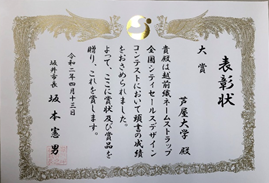 表彰状
大賞
芦屋大学 殿
貴殿は越前織ネームストラップ
全国シティセールスデザイン
コンテストにおいて頭書の成績
をおさめられました。
よって、ここに賞状及び賞品を
贈り、これを賞します。
令和二年四月十三日
坂井市長 坂本憲男